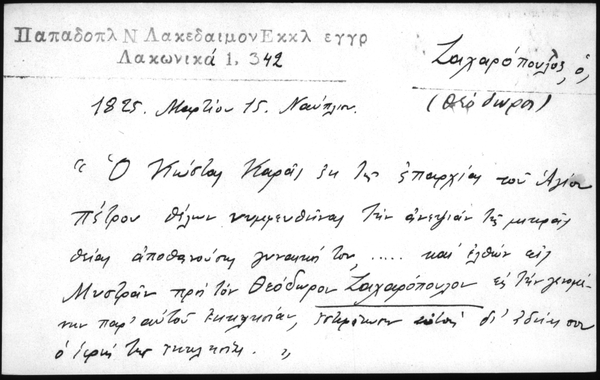 Παπαδοπλ Ν Λακεδαιμον Εκκλ εγγρ
Λακωνικά 1, 342
Ζαχαρόπουλος, ὁ,
(Θεόδωρος)
1825. Μαρτίου 15. Ναύπλιον.
"Ὁ Κώστας Καρᾶς ἐκ τῆς ἐπαρχίας τοῦ Ἁγίου
Πέτρου θέλων νυμφευθῆναι τὴν ἀνεψιὰν τῆς μητρᾶς
θείας ἀποθανούσης γυναικός του, ..... καὶ ἐλθὼν εἰς
Μυστρᾶν πρὸς τὸν Θεόδωρον Ζαχαρόπουλον εἰς τὴν γενομέ-
νην παρ' αὐτοῦ ἐκκλησίαν, δι'
ὁ τῆς ἐκκλησίας. "